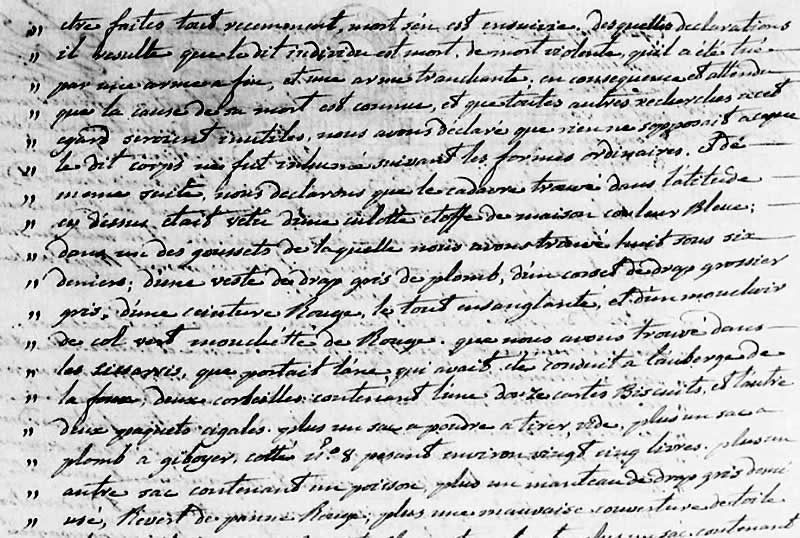 „ etre faites tout recemment, mort s'en est ensuivie. desquelles declarations
„ il resulte que le dit individu est mort, de mort violente, qu'il a été tué
„ par une arme a feu, et une arme tranchante, en consequence et attendu
„ que la cause de sa mort est connue, et que toutes autres recherches a cet
„ egard seroient inutiles, nous avons déclaré que rien ne s'opposait a ceque
„ le dit corps ne fut inhumé suivant les formes ordinaires. et de
„ meme suite, nous declarons que le cadavre trouvé dans l'atitude
„ cy dessus etait vetu d'une culotte etoffe de maison couleur Bleue;
„ dans un des goussets de laquelle nous avons trouvé huit sous six
„ deniers; d'une veste de drap gris de plomb, d'un corset de drap grossier
„ gris, d'une ceinture Rouge, le tout ensanglanté, et d'un mouchoir
„ de col vert mouchetté de Rouge. que nous avons trouvé dans
„ les que portait l'ane qui avait eté conduit a l'auberge de
„ la foux, deux corbeilles contenant l'une douze cartes Biscuits, et l'autre
„ deux paquets cigales. plus un sac a poudre a tirer, vide, plus un sac a
„ plomb a giboyer, cotté n.º 8 pesant environ vingt cinq livres. plus un
„ autre sac contenant un poisson, plus un manteau de drap gris demi
„ usé, Revert de panne Rouge, plus une mauvaise couverture de toile
plus un sac contenant